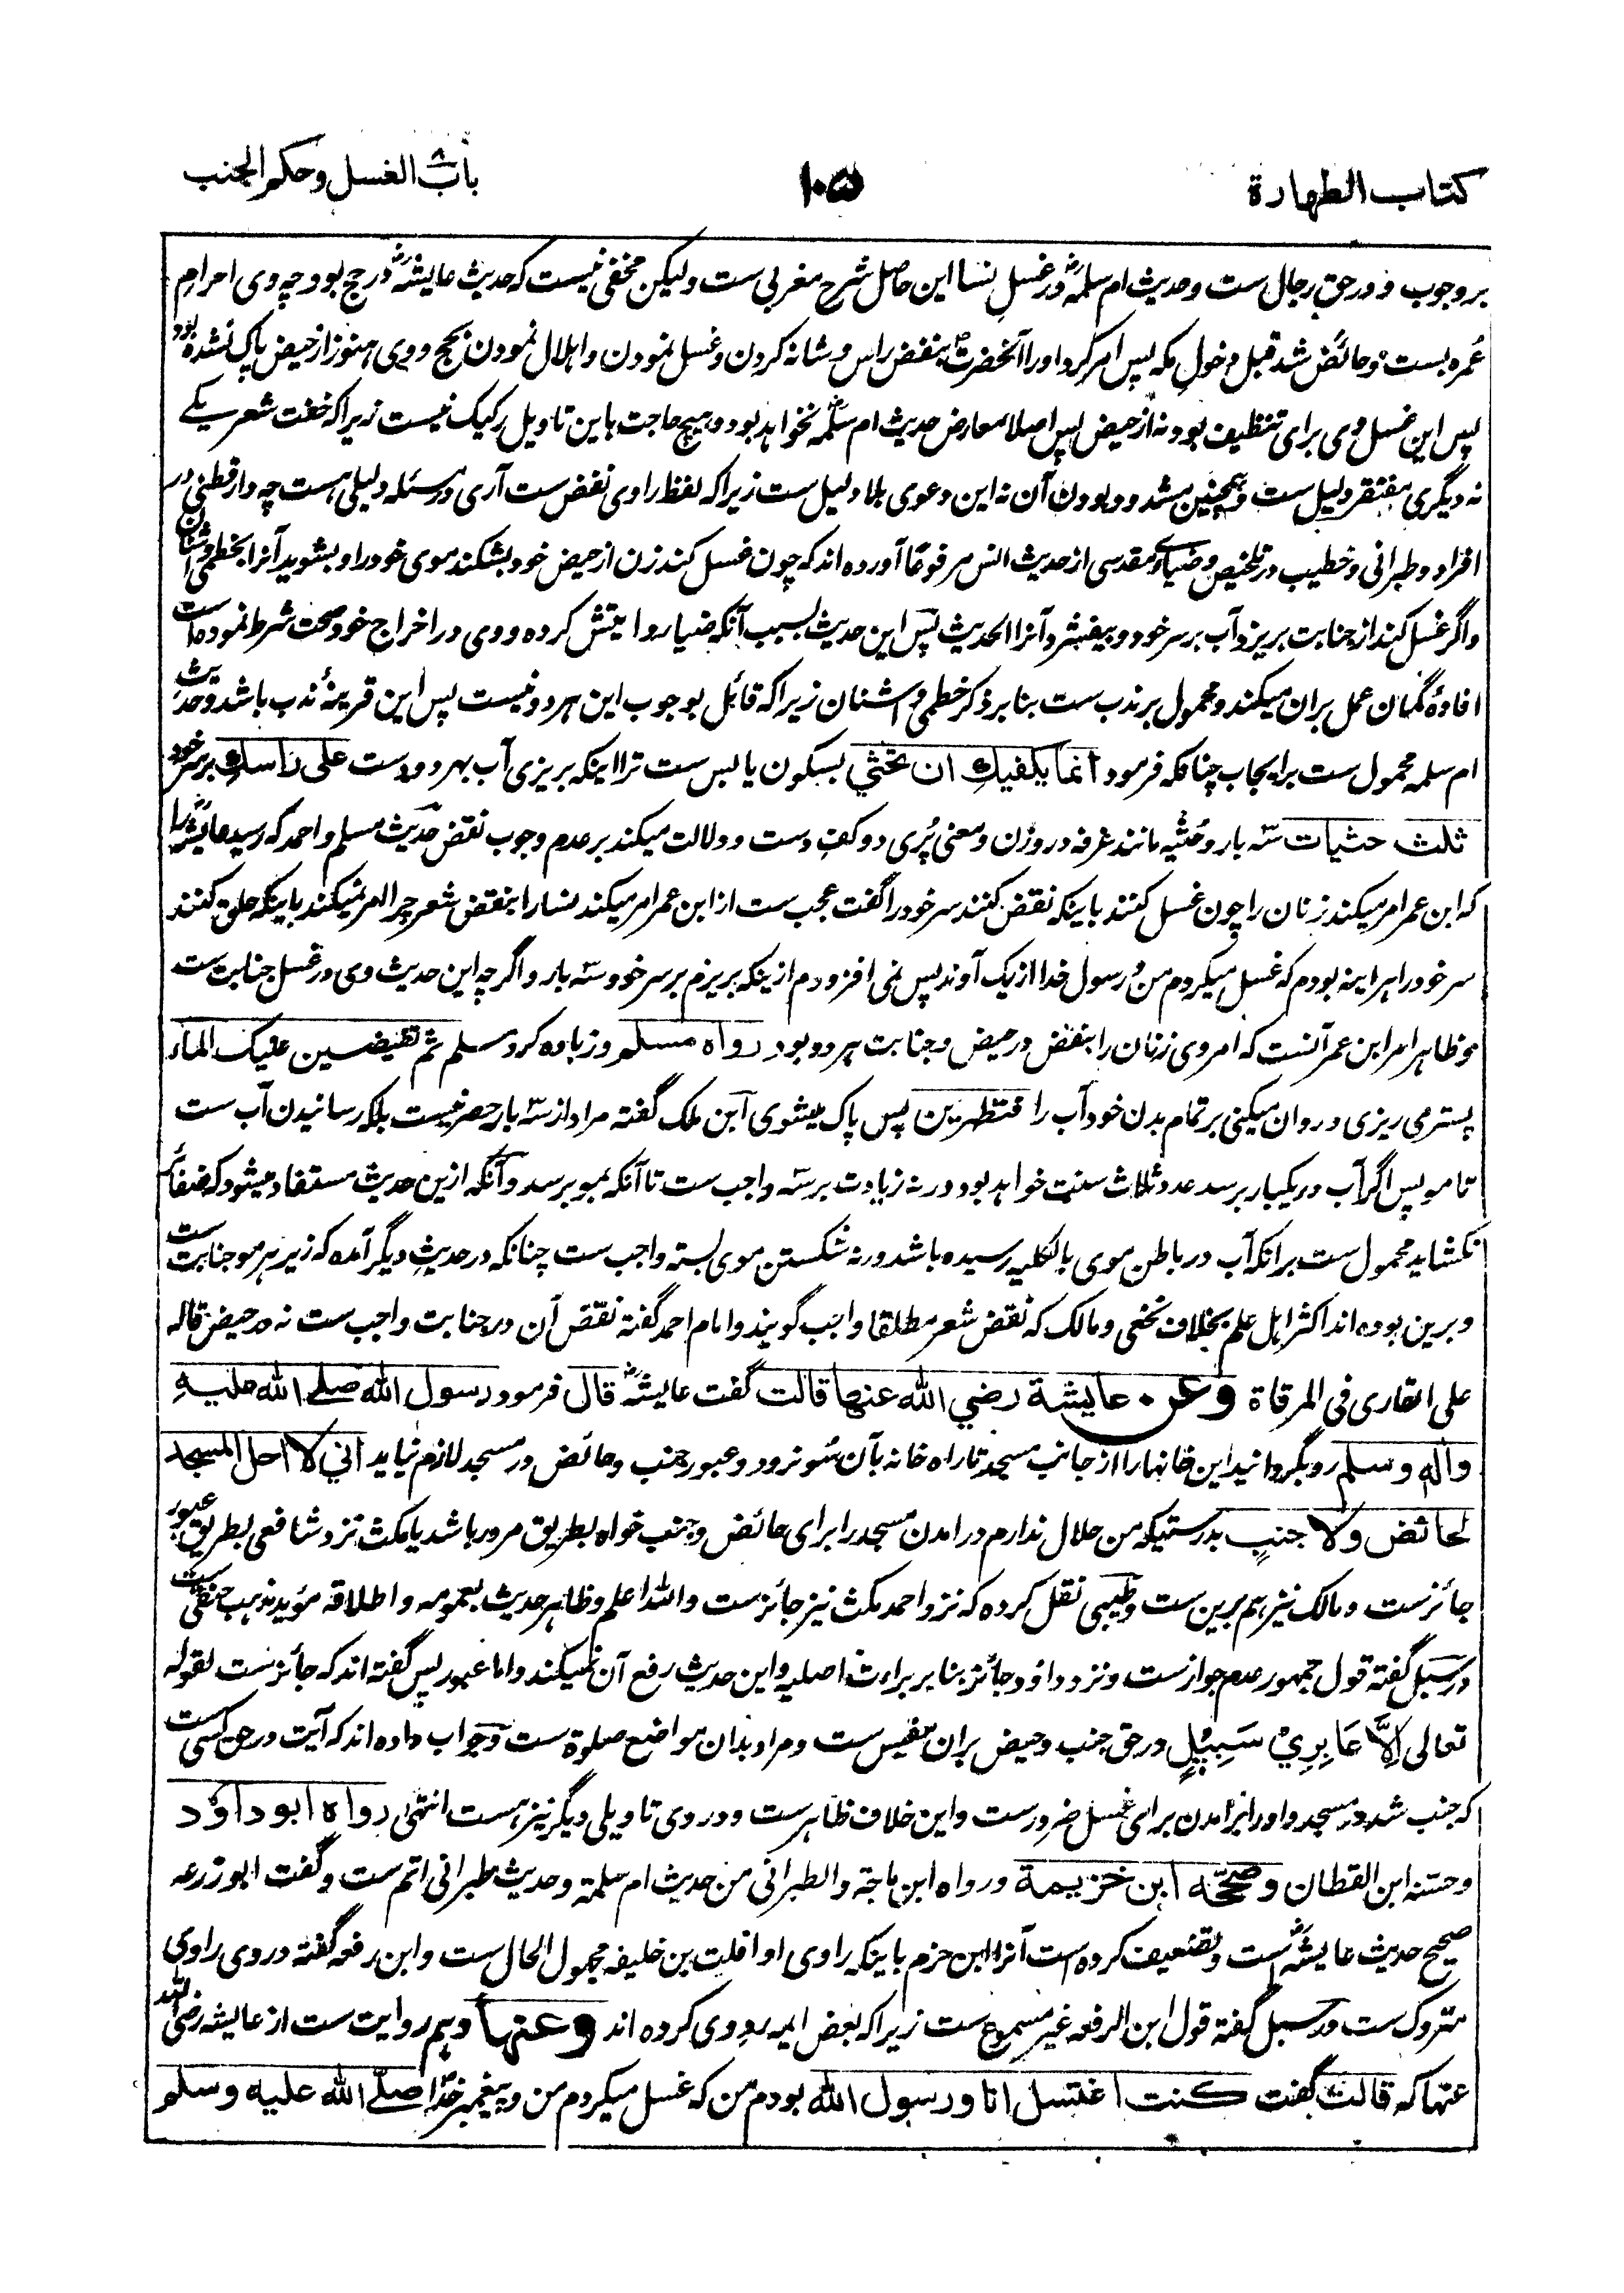 کتاب الطهارة
۱۰۵
باب الغسل وحکم الجنب
بر وجوب و در حق رجال ست و حدیث ام سلمهؓ در غسل نسا این حاصل شرح مغربی ست ولیکن مخفی نیست که حدیث عایشهؓ در حج بود چه وی احرام
عُمره بست و حائض شد قبل دخولِ مکه پس امر کرد او را آنحضرتؐ بنقض راس و شانه کردن و غسل نمودن و اهلال نمودن بحج و وی هنوز از حیض پاک نشده بود
پس این غسل وی برای تنظیف بود نه از حیض پس اصلا معارض حدیث ام سلمهؓ نخواهد بود و هیچ حاجت باین تاویل رکیک نیست زیراکه خفت شعر یکے
نه دیگری مفتقر دلیل ست و همچنین مشدود بودن آن نه این دعوی بلا دلیل ست زیراکه لفظ راوی نقض ست آری در مسئله دلیلی هست چه دارقطنی در
افراد و طبرانی و خطیب در تلخیص و ضیاے مقدسی از حدیث انس مرفوعًا آورده اند که چون غسل کند زن از حیض خود بشکند موی خود را و بشوید آنرا بخطمی و اشنان
و اگر غسل کند از جنابت بریزد آب بر سر خود و بیفشرد آنرا الحدیث پس این حدیث بسبب آنکه ضیا روایتش کرده و وی در اخراج خود صحت شرط نموده است
افادهٔ گمان عمل بران میکند و محمول بر ندب ست بنا بر ذکر خطمی و اشنان زیراکه قائل بوجوب این هر دو نیست پس این قرینهٔ ندب باشد و حدیث
ام سلمه محمول ست بر ایجاب چنانکه فرمود انما یکفیكِ ان تحثي بسکون یا بس ست ترا اینکه بریزی آب بهر دو دست علی راسكِ بر سر خود
ثلث حثیات سه بار و حَثیه مانند غرفه در وزن و معنی پُری دو کفِ دست و دلالت میکند بر عدم وجوب نقض حدیث مسلم و احمد که رسید عایشهؓ را
که ابن عمر امر میکند زنان را چون غسل کنند باینکه نقض کنند سر خود را گفت عجب ست از ابن عمر امر میکند نسا را بنقض شعر چرا امر نمیکند باینکه حلق کنند
سر خود را هر اینه بودم که غسل میکردم من و رسول خدا از یک آوند پس نمی افزودم ازینکه بریزم بر سر خود سه بار و اگرچه این حدیث وی در غسل جنابت ست
و ظاهر امر ابن عمر آنست که امر وی زنان را بنقض در حیض و جنابت هر دو بود رواه مسلم و زیاده کرد مسلم ثم تفیضین علیک الماء
پستر می ریزی و روان میکنی بر تمام بدن خود آب را فتطهرین پس پاک میشوی ابن ملک گفته مراد از سه بار حصر نیست بلکه رسانیدن آب ست
تا مو پس اگر آب در یکبار برسد عدد ثلاث سنت خواهد بود ورنه زیادت بر سه واجب ست تا آنکه بمو برسد و آنکه ازین حدیث مستفاد میشود که ضفائر
نکشاید محمول ست برانکه آب در باطن موی بالکلیه رسیده باشد ورنه شکستن موی بسته واجب ست چنانکه در حدیثِ دیگر آمده که زیر هر مو جنابت ست
و برین بوده اند اکثر اهل علم بخلاف نخعی و مالک که نقض شعر مطلقا واجب گویند و امام احمد گفته نقض آن در جنابت واجب ست نه در حیض قاله
علی القاری فی المرقاة وعن عایشة رضي الله عنها قالت گفت عایشهؓ قال فرمود رسول الله صلے الله علیہِ
وآله وسلم رو بگردانید این خانها را از جانب مسجد تا راه خانه بآن سُو نرود و عبور جنب و حائض در مسجد لازم نیاید اني لا احل المسجد
لحائض ولا جنبٍ بدرستیکه من حلال ندارم درامدن مسجد را برای حائض و جنب خواه بطریق مرور باشد یا مکث نزد شافعی بطریق عبور
جائزست و مالک نیز هم برین ست و طیبی نقل کرده که نزد احمد مکث نیز جائزست و الله اعلم و ظاهر حدیث بعمومه و اطلاقه مؤید مذهب حنفی ست
در سبل گفته قول جمهور عدم جواز ست و نزد داؤد جائز بنا بر براءت اصلیه و این حدیث رفع آن نمیکند و اما عبور پس گفته اند که جائزست لقوله
تعالی اِلَّا عَابِرِيْ سَبِیْلٍ در حق جنب و حیض بران مقیس ست و مراد بدان مواضع صلوة ست و جواب داده اند که آیت در حق کسی ست
که جنب شد در مسجد و او را برآمدن برای غسل ضرورست و این خلاف ظاهرست و در وی تاویلی دیگر نیز هست انتهی رواه ابو داؤد
و حسّنه ابن القطان وصححه ابن خزیمة و رواه ابن ماجة والطبرانی من حدیث ام سلمة و حدیث طبرانی اتم ست و گفت ابو زرعه
صحیح حدیث عایشهؓ است و تضعیف کرده است آنرا ابن حزم باینکه راوی او افلت بن خلیفه مجهول الحال ست و ابن رفعه گفته در وی راوی
متروک ست در سبل گفته قول ابن الرفعه غیر مسموع ست زیراکه بعض ایمه رد وی کرده اند وعنها و هم روایت ست از عایشه رضی الله
عنها که قالت گفت کنت اغتسل انا ورسول الله بودم من که غسل میکردم من و پیغمبر خدا صلے الله علیه وسلم